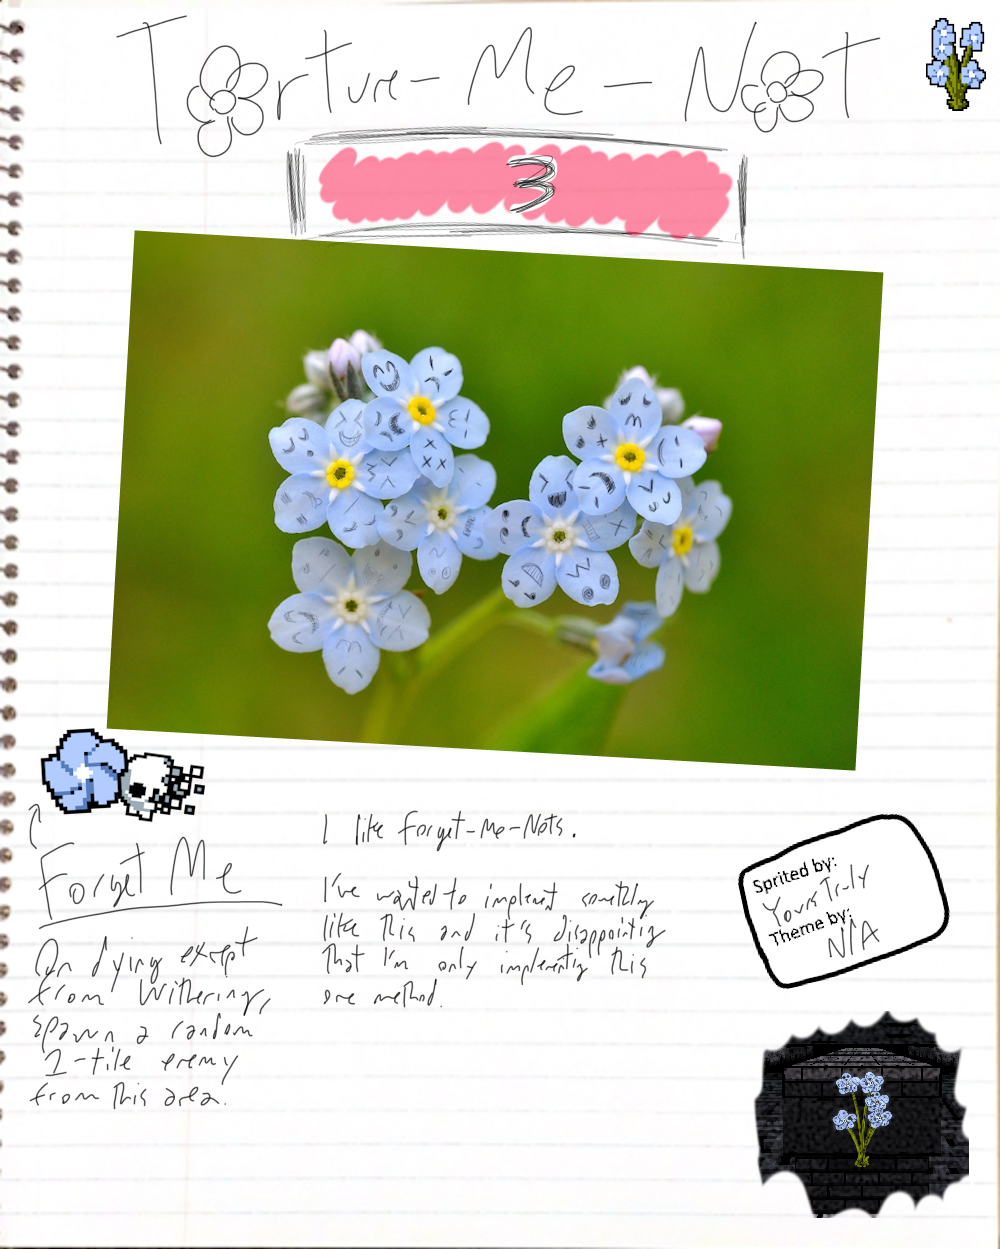 Torture-Me-Not
3
Forget Me
On dying except
from Withering,
spawn a random
1-tile enemy
from this area.
I like Forget-Me-Nots.
I've wanted to implement something
like this and it's disappointing
that I'm only implementing this
one method.
Sprited by:
Yours Truly
Theme by:
N/A